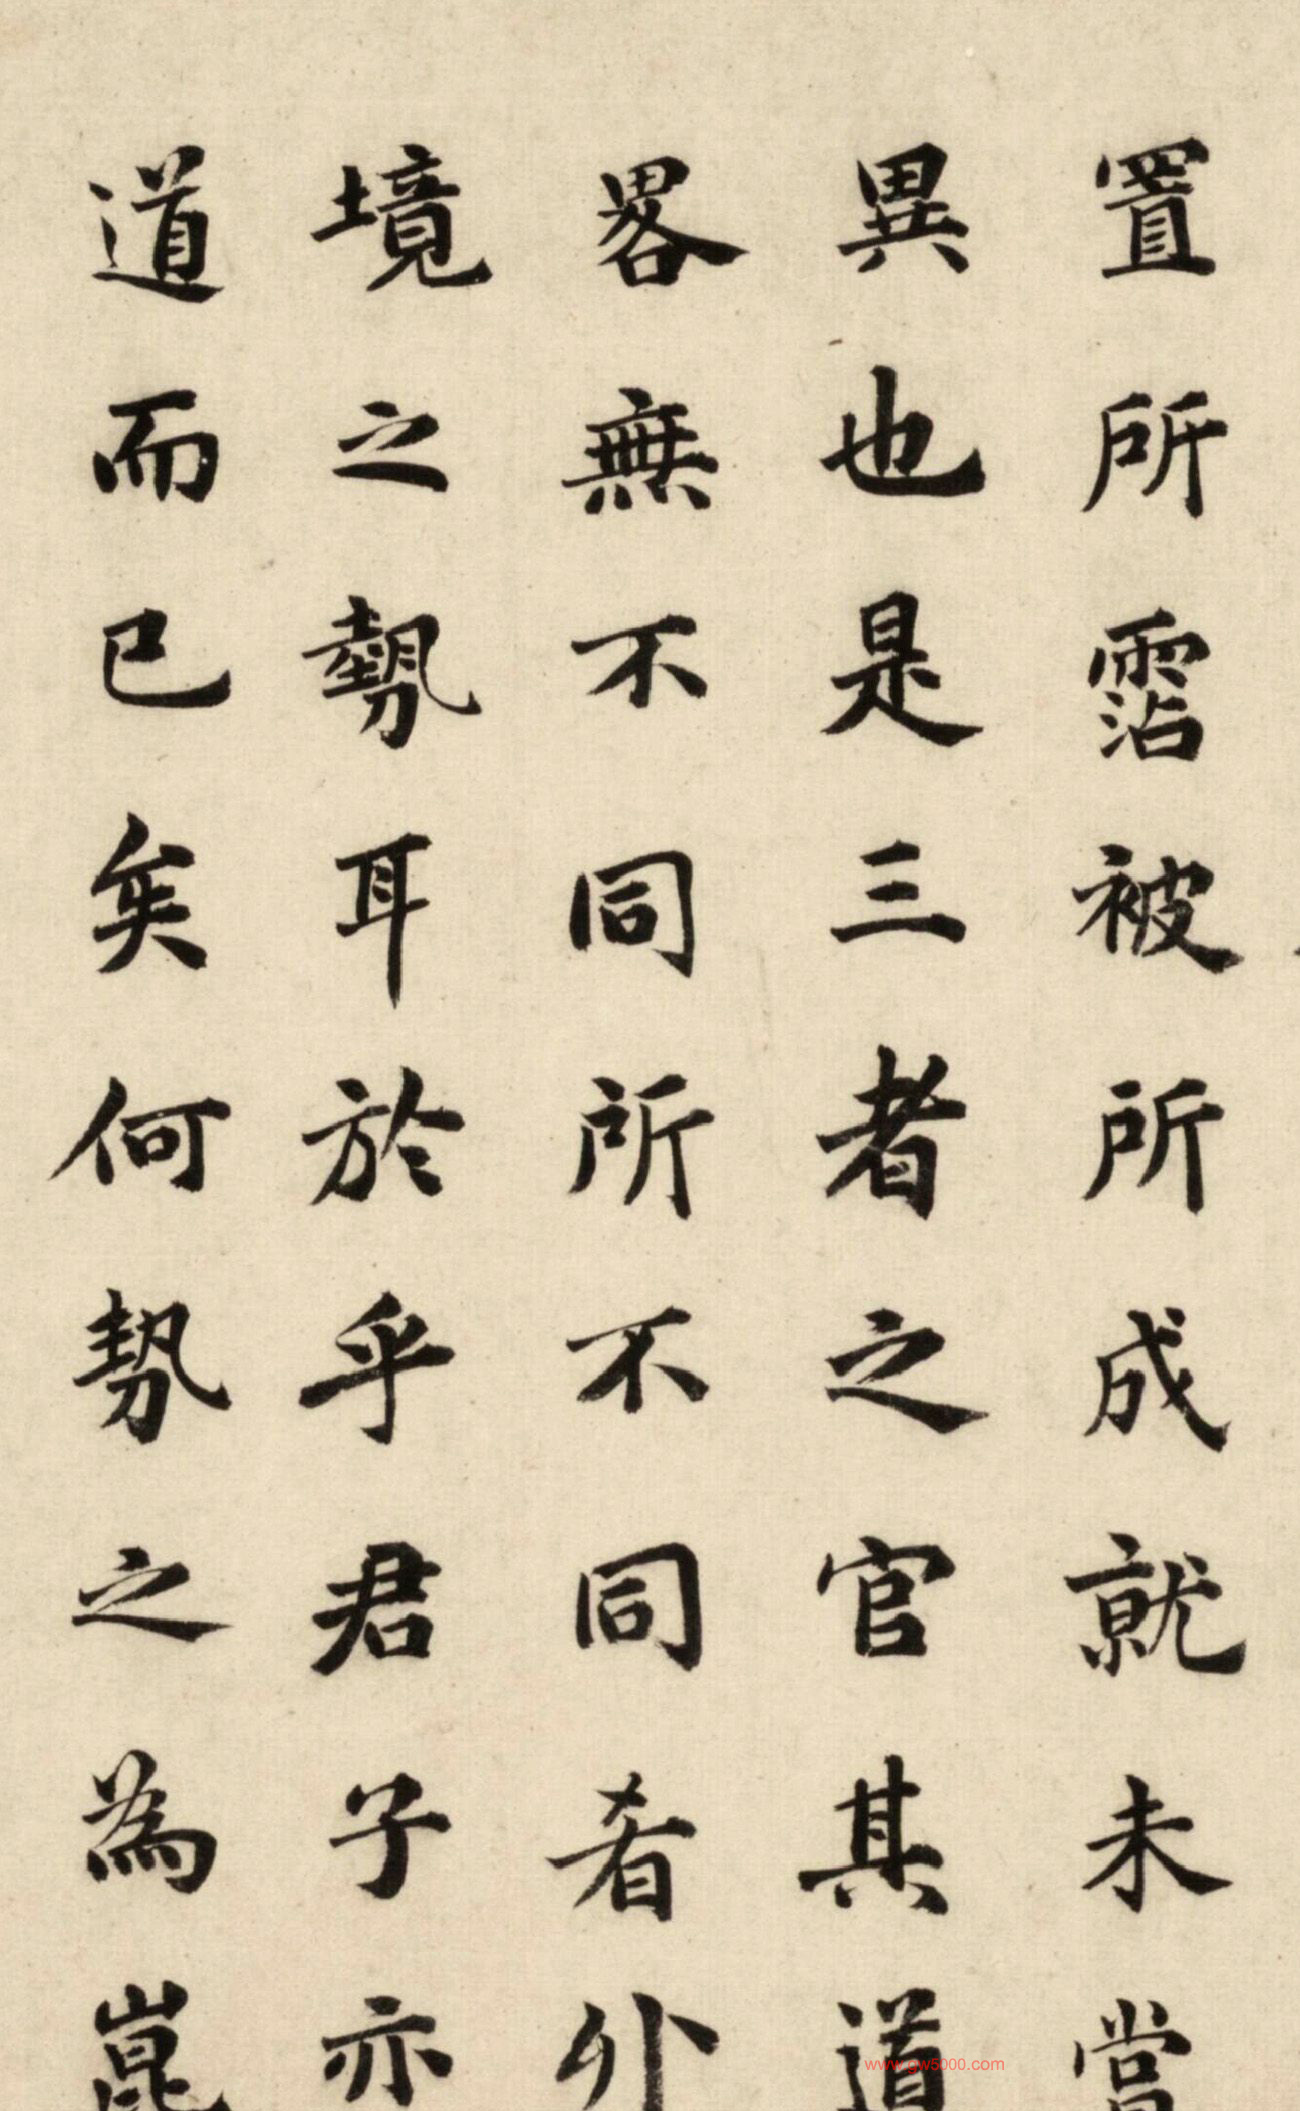 置所霑被所成就未嘗
異也是三者之官其道
畧無不同所不同者外
境之勢耳於乎君子亦
道而已矣何勢之為崑
www.gw5000.com